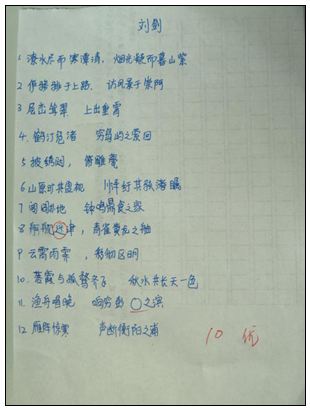 刘剑
1 潦水尽而寒潭清, 烟光凝而暮山紫
2 于上路. 访风景于崇阿
3 层峦耸翠 上出重霄
4. 鹤汀凫渚 穷岛屿之萦回
5 披绣闼, 俯雕甍
6 山原旷其盈视 川泽纡其骇瞩
7 闾阎扑地 钟鸣鼎食之家
8 津, 青雀黄龙之轴
9 云霄雨霁, 彩彻区明
10. 落霞与孤鹜齐飞 秋水共长天一色
11. 渔舟唱晚 响穷彭〇之滨
12. 雁阵惊寒 声断衡阳之浦
10 优